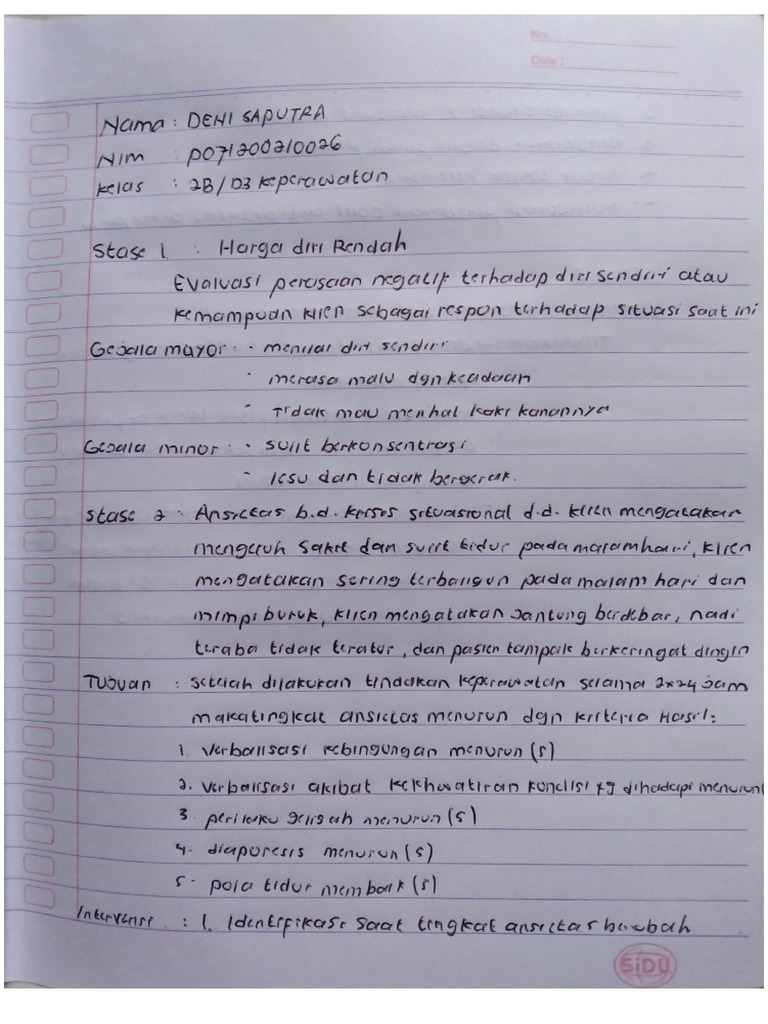 No.
Date :
Nama : DENI SAPUTRA
Nim : P071200210026
Kelas : 2B / D3 Keperawatan
Stase 1. : Harga diri Rendah
Evaluasi perasaan negatif terhadap diri sendiri atau
kemampuan klien sebagai respon terhadap situasi saat ini
Gejala mayor : - menilai diri sendiri
- merasa malu dgn keadaan
- Tidak mau melihat kaki kanannya
Gejala minor : - sulit berkonsentrasi
- lesu dan tidak bergerak.
Stase 2 : Ansietas b.d. krisis situasional d.d. klien mengatakan
mengeluh sakit dan sulit tidur pada malam hari, klien
mengatakan sering terbangun pada malam hari dan
mimpi buruk, klien mengatakan jantung berdebar, nadi
teraba tidak teratur, dan pasien tampak berkeringat dingin
Tujuan : setelah dilakukan tindakan keperawatan selama 2x24 jam
maka tingkat ansietas menurun dgn kriteria Hasil :
1. verbalisasi kebingungan menurun (5)
2. verbalisasi akibat kekhwatiran kondisi yg dihadapi menurun(
3. perilaku gelisah menurun (5)
4. diaporesis menurun (5)
5. pola tidur membaik (5)
Intervensi : 1. Identifikasi saat tingkat ansietas berubah
SiDU